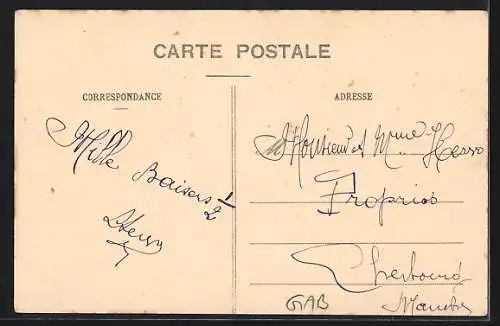 CARTE POSTALE
CORRESPONDANCE
ADRESSE
Mille
Baisers 1/2
Monsieur et Mme
Proprios
Cherbourg
Manche
GAB